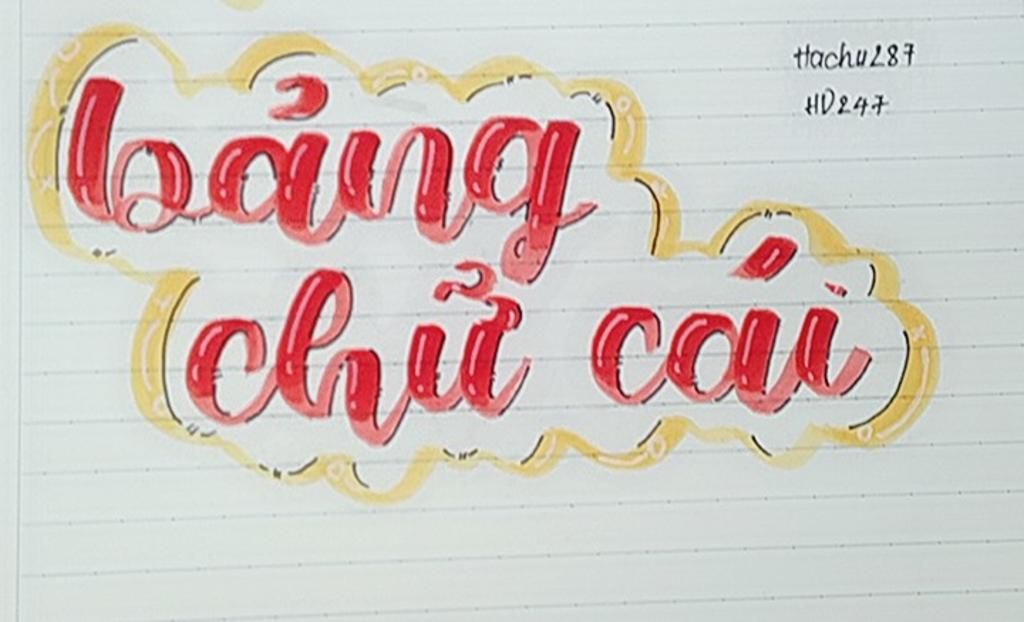 bảng
chữ cái
Hachu287
HD247